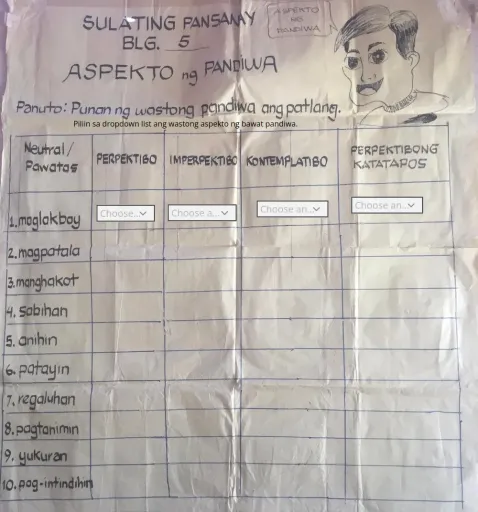 SULATING PANSANAY
BLG. 5
ASPEKTO
NG
PANDIWA
ASPEKTO ng PANDIWA
Panuto: Punan ng wastong pandiwa ang patlang.
Piliin sa dropdown list ang wastong aspekto ng bawat pandiwa.
Neutral/ Pawatas PERPEKTIBO IMPERPEKTIBO KONTEMPLATIBO PERPEKTIBONG KATATAPOS
1. maglakbay Choose... Choose a... Choose an... Choose an...
2. magpatala
3. manghakot
4. sabihan
5. anihin
6. patayin
7. regaluhan
8. pagtanimin
9. yukuran
10. pag-intindihin